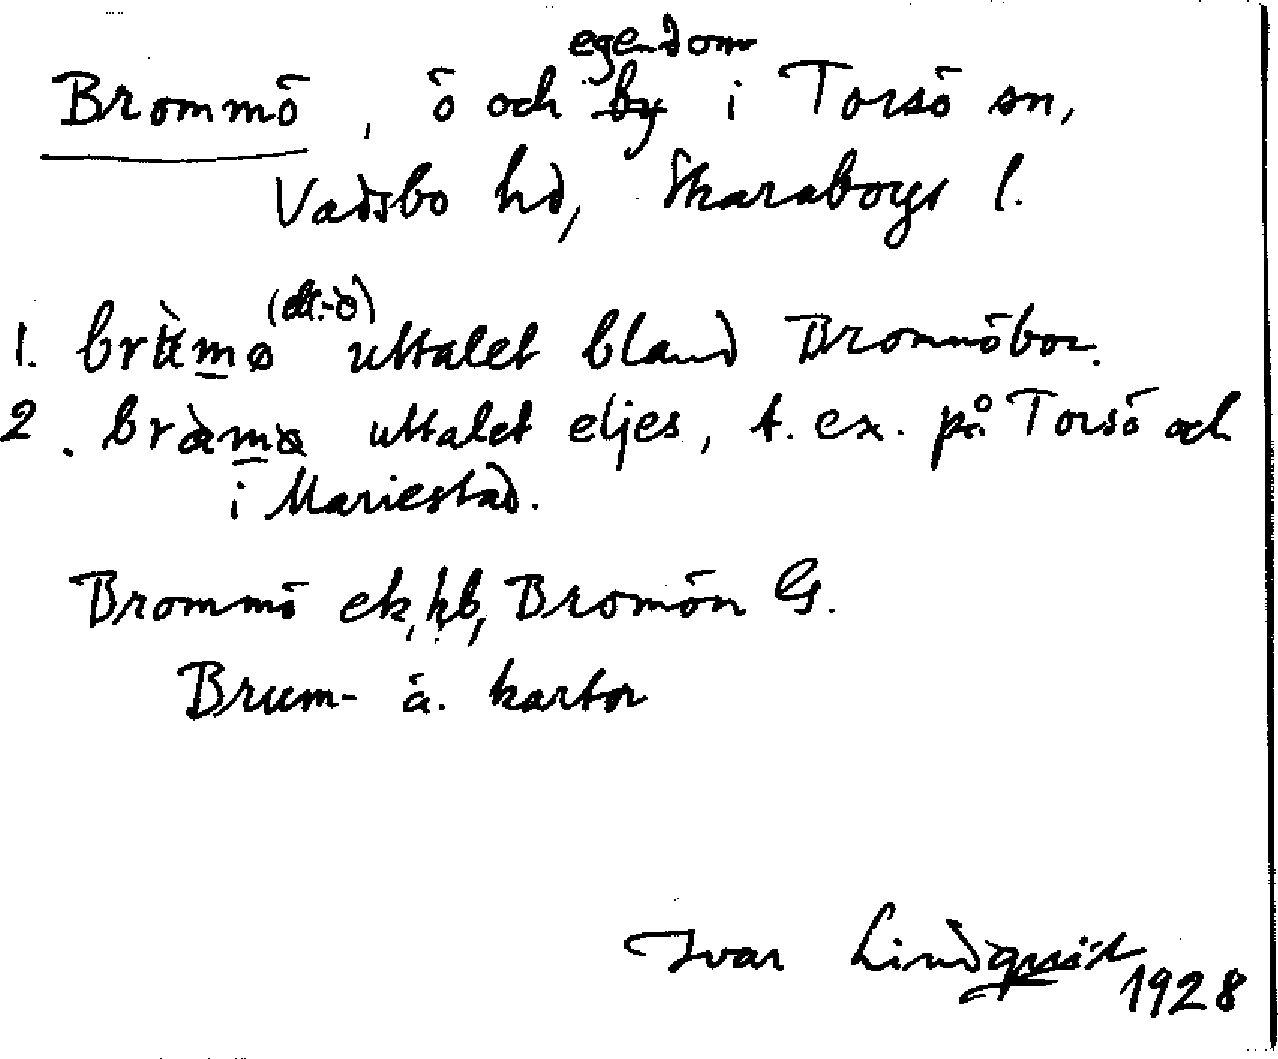 egendom
Brommö, ö och by i Torsö sn,
Vadsbo hd, Skaraborgs l.
(ell.-ö)
1. uttalet bland Brommöbor.
2. uttalet eljes, t. ex. på Torsö och
i Mariestad.
Brommö ek, kb, Bromön G.
Brum- ä. kartor
Ivar Lindquist
1928